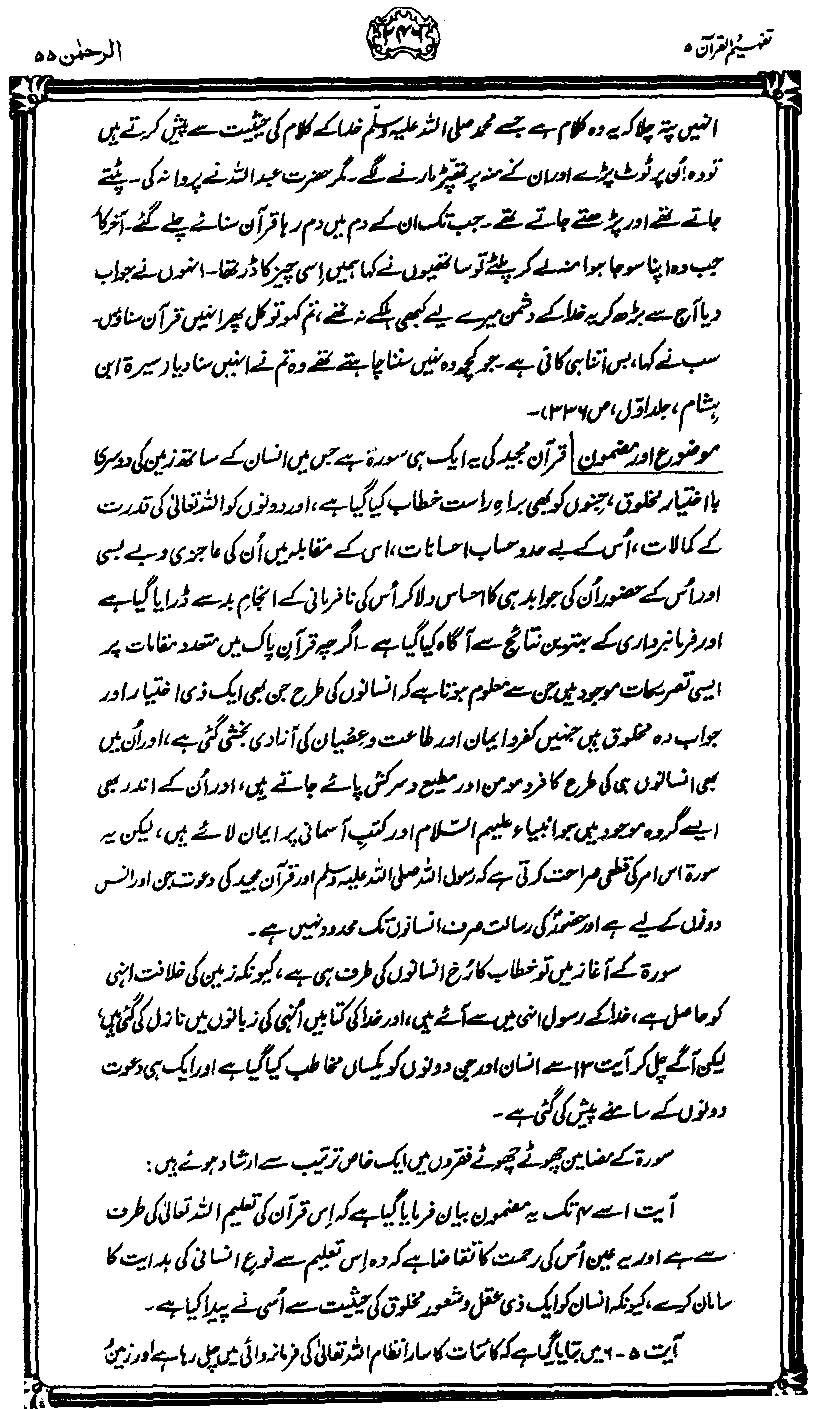 تفہیم القرآن ۵
۲۴۶
الرحمٰن ۵۵
انہیں پتہ چلا کہ یہ وہ کلام ہے جسے محمد صلی اللہ علیہ وسلم خدا کے کلام کی حیثیت سے پیش کرتے ہیں
تو وہ اُن پر ٹوٹ پڑے اور ان کے منہ پر تھپڑ مارنے لگے۔ مگر حضرت عبداللہ نے پروا نہ کی۔ پٹتے
جاتے تھے اور پڑھتے جاتے تھے۔ جب تک ان کے دم میں دم رہا قرآن سنائے چلے گئے۔ آخر کار
جب وہ اپنا سوجا ہوا منہ لے کر پلٹے تو ساتھیوں نے کہا ہمیں اِسی چیز کا ڈر تھا۔ انہوں نے جواب
دیا آج سے بڑھ کر یہ خدا کے دشمن میرے لیے کبھی ہلکے نہ تھے، تم کہو تو کل پھر انہیں قرآن سناؤں۔
سب نے کہا، بس اتنا ہی کافی ہے۔ جو کچھ وہ نہیں سننا چاہتے تھے وہ تم نے انہیں سنا دیا (سیرۃ ابن
ہشام، جلد اوّل، ص ۳۳۶)۔
موضوع اور مضمون قرآن مجید کی یہ ایک ہی سورۃ ہے جس میں انسان کے ساتھ زمین کی دوسری
با اختیار مخلوق، جنوں کو بھی براہِ راست خطاب کیا گیا ہے، اور دونوں کو اللہ تعالیٰ کی قدرت
کے کمالات، اُس کے بے حد و حساب احسانات، اس کے مقابلہ میں اُن کی عاجزی و بے بسی
اور اُس کے حضور اُن کی جوابدہی کا احساس دلا کر اُس کی نافرمانی کے انجامِ بد سے ڈرایا گیا ہے
اور فرمانبرداری کے بہترین نتائج سے آگاہ کیا گیا ہے۔ اگرچہ قرآنِ پاک میں متعدد مقامات پر
ایسی تصریحات موجود ہیں جن سے معلوم ہوتا ہے کہ انسانوں کی طرح جن بھی ایک ذی اختیار اور
جواب دہ مخلوق ہیں جنہیں کفر و ایمان اور طاعت و عصیان کی آزادی بخشی گئی ہے، اور اُن میں
بھی انسانوں ہی کی طرح کافر و مومن اور مطیع و سرکش پائے جاتے ہیں، اور اُن کے اندر بھی
ایسے گروہ موجود ہیں جو انبیاء علیہم السّلام اور کتبِ آسمانی پر ایمان لائے ہیں، لیکن یہ
سورۃ اس امر کی قطعی صراحت کرتی ہے کہ رسول اللہ صلی اللہ علیہ وسلم اور قرآن مجید کی دعوت جن اور انس
دونوں کے لیے ہے اور حضورؐ کی رسالت صرف انسانوں تک محدود نہیں ہے۔
سورۃ کے آغاز میں تو خطاب کا رُخ انسانوں کی طرف ہی ہے، کیونکہ زمین کی خلافت انہی
کو حاصل ہے، خدا کے رسول انہی میں سے آئے ہیں، اور خدا کی کتابیں اُنہی کی زبانوں میں نازل کی گئی ہیں،
لیکن آگے چل کر آیت ۱۳ سے انسان اور جن دونوں کو یکساں مخاطب کیا گیا ہے اور ایک ہی دعوت
دونوں کے سامنے پیش کی گئی ہے۔
سورۃ کے مضامین چھوٹے چھوٹے فقروں میں ایک خاص ترتیب سے ارشاد ہوئے ہیں:
آیت ۱ سے ۴ تک یہ مضمون بیان فرمایا گیا ہے کہ اِس قرآن کی تعلیم اللہ تعالیٰ کی طرف
سے ہے اور یہ عین اُس کی رحمت کا تقاضا ہے کہ وہ اِس تعلیم سے نوعِ انسانی کی ہدایت کا
سامان کرے، کیونکہ انسان کو ایک ذی عقل و شعور مخلوق کی حیثیت سے اُسی نے پیدا کیا ہے۔
آیت ۵-۶ میں بتایا گیا ہے کہ کائنات کا سارا نظام اللہ تعالیٰ کی فرمانروائی میں چل رہا ہے اور زمین و